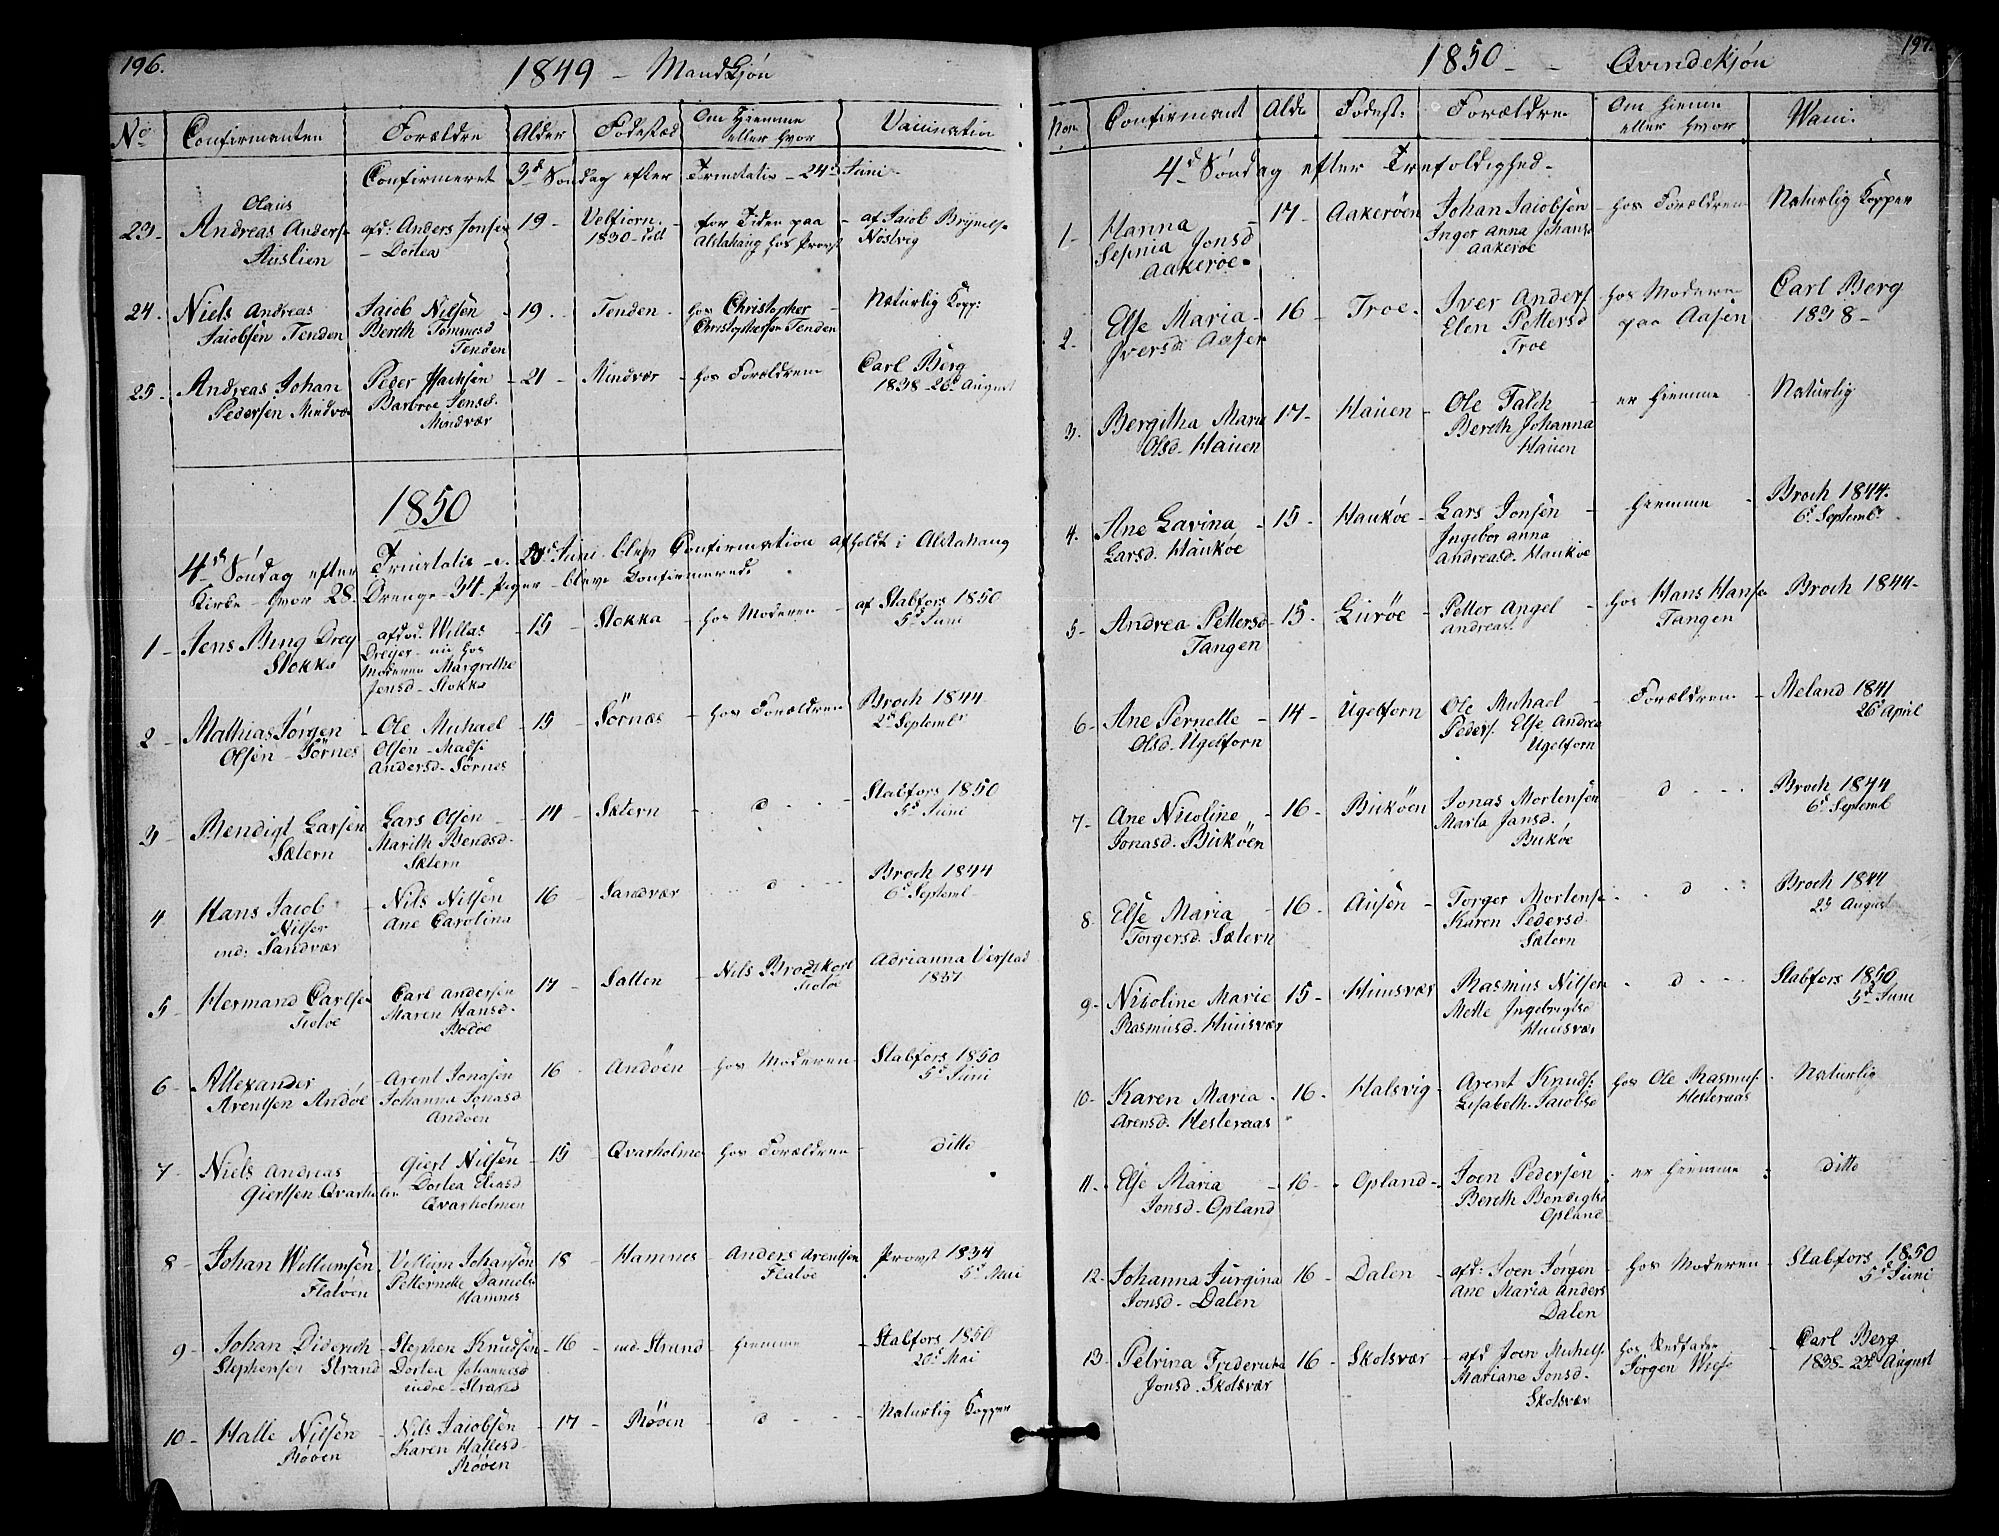 196.
1849 - Mandkjøn
No Confirmanten Forældre Alder Fødested Om Hiemme eller hvor Vaccination
Confirmeret 3d Søndag efter Trinitatis - 24de Juni -
23 - Andreas Olaus Anders- Auslien
afd: Anders Jonsen - Dortea
19 - Velfiorn. 1830 - født
for Tiden paa Alstahaug hos Provst
af Jacob Brynels- Nøstvig
24 - Niels Andreas Jacobsen Tenden
Jacob Nilsen Bereth Tommesd Tenden
19 - Tenden - hos Christopher Christophersen Tenden
Naturlig Kopp:
25 - Andreas Johan Pedersen Mindvær
Peder Isachsen Barbroe Jensd. Mindvær
21 - Mindvær - hos Forældrene
Carl Berg 1838 - 26d August
1850
4de Søndag efter Trinitatis - d. Juni blev Confirmation afholdt i Alstahaug
Kirke - hvor 28 Drenge - 34 Piger - bleve Confirmerede
1 - Jens Bing Drey Stokka
afdød: Willas Dreyer - nu hos Moderen Margrethe Jonsd - Stokka
15 - Stokka - hos Moderen - af Stabfors 1850 5d Juni
2 - Mathias Jørgen Olsen - Sørnes
Ole Michael Olsen - Andersd - Sørnes
15 - Sørnæs - hos Forældrene
Broch 1844 2d Septembr
3 - Bendigt Larsen Sætern
Lars Olsen - Marith Bendsd - Sætern
14 - Sætern - d - - Stabfors 1850 5d Juni
4 - Hans Jacob Nilsen ind: Sandvær
Nils Nilsen Ane Carolina
16 - Sandvær - d - - Broch 1844 6d Septemb
5 - Hermand Carlsen Tiotøe
Carl Andersen Maren Hansd - Bodøe
17 - Salten - Nils Brodtkorb Tiotøe
Adrianna 1837
6 - Allexander Arentsen Andøe
Arent Jonasen Johanna Jonasd Andøen
16 - Andøen - hos Moderen - Stabfors 1850 5d Juni
7 - Niels Andreas Giertsen Qvarholm
Giert Nilsen - Dortea Eliasd Qvarholmen
15 - Qvarholme - hos Forældrene - ditto
8 - Johan Willumsen Flatøen
Villum Johansen Petternelle Daniels Hamnes
18 - Hamnes - Anders Arentsen Flatøe
Provst 1834 5d Mai
9 - Johan Diderich Stephensen Strand
Stephen Knudsen Dortea Johannesd indre - Strand
16 - ind - Strand - hiemme - Stabfors 1850 20d Mai
10 - Halle Nilsen Røøen
Nils Jacobsen Karen Hallesd - Røøen
17 - Røøen - d - - Naturlig Kopper
197.
1850 - - Qvindekjøn
Non. Confirmant Alde Fødest: Forældre Om hiemme eller hvor Vacci.
4d Søndag efter Trefoldighed -
1 - Hanna Sepnia Jonsd Aakerøe -
17 - Aakerøen
Johan Jacobsen Inger Anna Johansd Aakerøe
hos Forældrene Naturlig Kopper
2 - Else Maria Iversd: Aasen
16 - Troe -
Iver Anders. Elen Pettersd Troe
hos Modere paa Aasen
Carl Berg 1838 -
3 - Bergitha Marie Olsd - Hauen
17 - Hauen -
Ole Falch Bereth Johanna Hauen
er hiemme Naturlig
4 - Ane Lavina Larsd. Haukøe
15 - Haukøe -
Lars Jonsen Ingebor Anna Andreasd. Haukøe
hiemme - Broch 1844. 6d Septembr
5 - Andrea Pettersd Tangen
15 - Lurøe -
Petter Angel Andreas.
hos Hans Hanse Tangen
Broch 1844 -
6 - Ane Pernelle Olsd - Ugelforn
14 - Ugelforn
Ole Michael Peders. Else Andrea Ugelforn
Forældrene - Meland 1841 26d April
7 - Ane Nicoline Jonasd. Bukøen
16 - Bukøen
Jonas Mortensen Marta Jansd. Bukøe
d - - Broch 1844 6d Septemb
8 - Else Maria Torgersd. Sætern
16 - Ausen -
Torger Mortense Karen Pedersd. Sætern
d - - Broch 1844 25 August
9 - Nicoline Marie Rasmusd. Huusvær
15 - Huusvær
Rasmus Nilsen Mette Ingebrigtsd Huusvær
d - - Stabfors 1850 5d Juni
10 - Karen Maria Arensd. Hesteraas
16 - Halsvig
Arent Knuds: Lisabeth Jacobsd
hos Ole Rasmus. Hesteraas
Naturlig
11 - Else Maria Jonsd - Opland
16 - Opland -
Joen Pedersen Bereth Bendigtsd Opland
er hiemme ditto
12 - Johanna Jurgina Jonsd - Dalen
16 - Dalen
afd: Joen Jørgen Ane Maria Anders Dalen
hos Moderen - Stabfors 1850 5d Juni
13 - Petrina Fredericka Jonsd - Skotsvær
16 - Skotsvær
afd Joen Michels. Mariane Jonsd - Skotsvær
hos Stedfader Jørgen Wiese
Carl Berg 1838 - 23d August